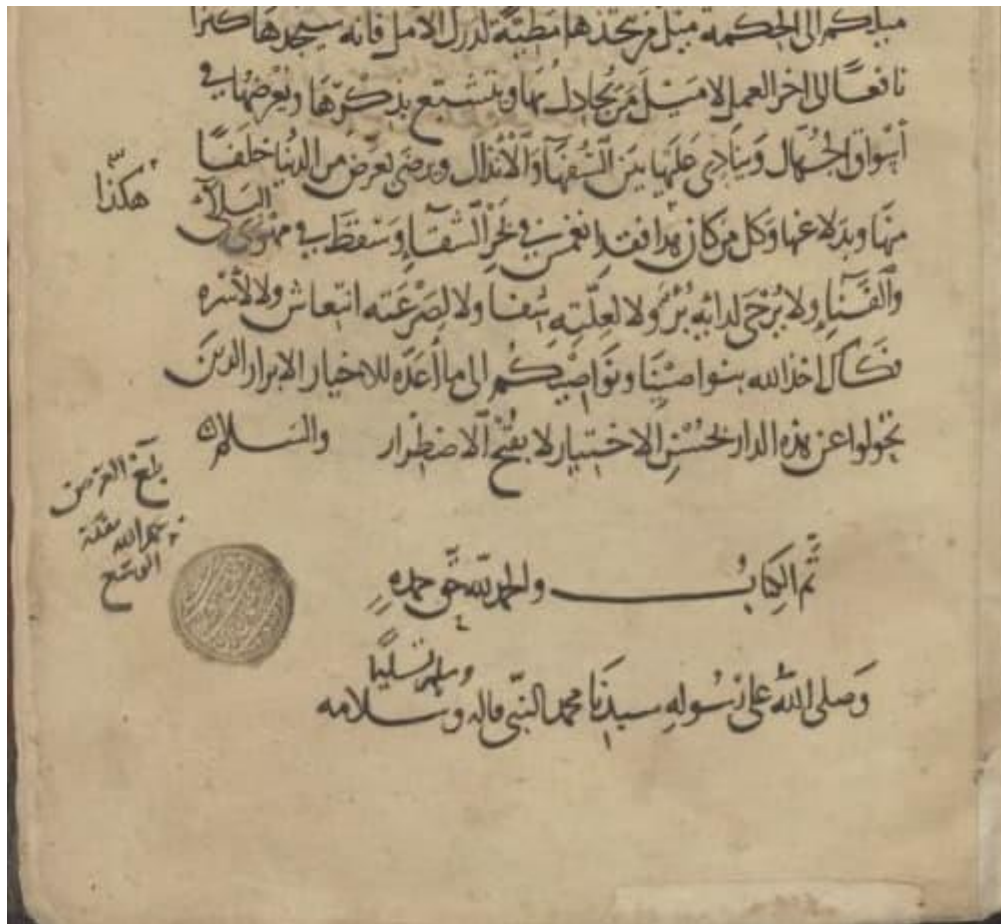 ميلكم الى الحكمة مثل من يتخذها مطية لدرك الامل فانه سيجدها كنزا
نافعا الى اخر العمل لا ميل من يجادل بها ويتشبع بذكرها ويعرضها في
أسواق الجهال وينادي عليها بين السفهآ والأنذال ويرضى بعرض من الدنيا خلفا
منها وبدلا عنها وكل من كان هذا فقد انغمس في لجج الشقآء وسقط في مهوى البلآء
هكذا
والفنآء ولا يرجى لدائه برء ولا لعلته شفا ولا لصرعته انتعاش ولا لأسره
فكاك اخذ الله بنواصينا ونواصيكم الى ما أعده للاخيار الابرار الذين
تحولوا عن هذه الدار بحسن الاختيار لا بقبح الاضطرار والسلام
بلغ العرض
بحمد الله
الوسع
تم الكتاب والحمد لله حق حمده
وصلى الله على رسوله سيدنا محمد النبي واله وسلامه
وسلم تسليما